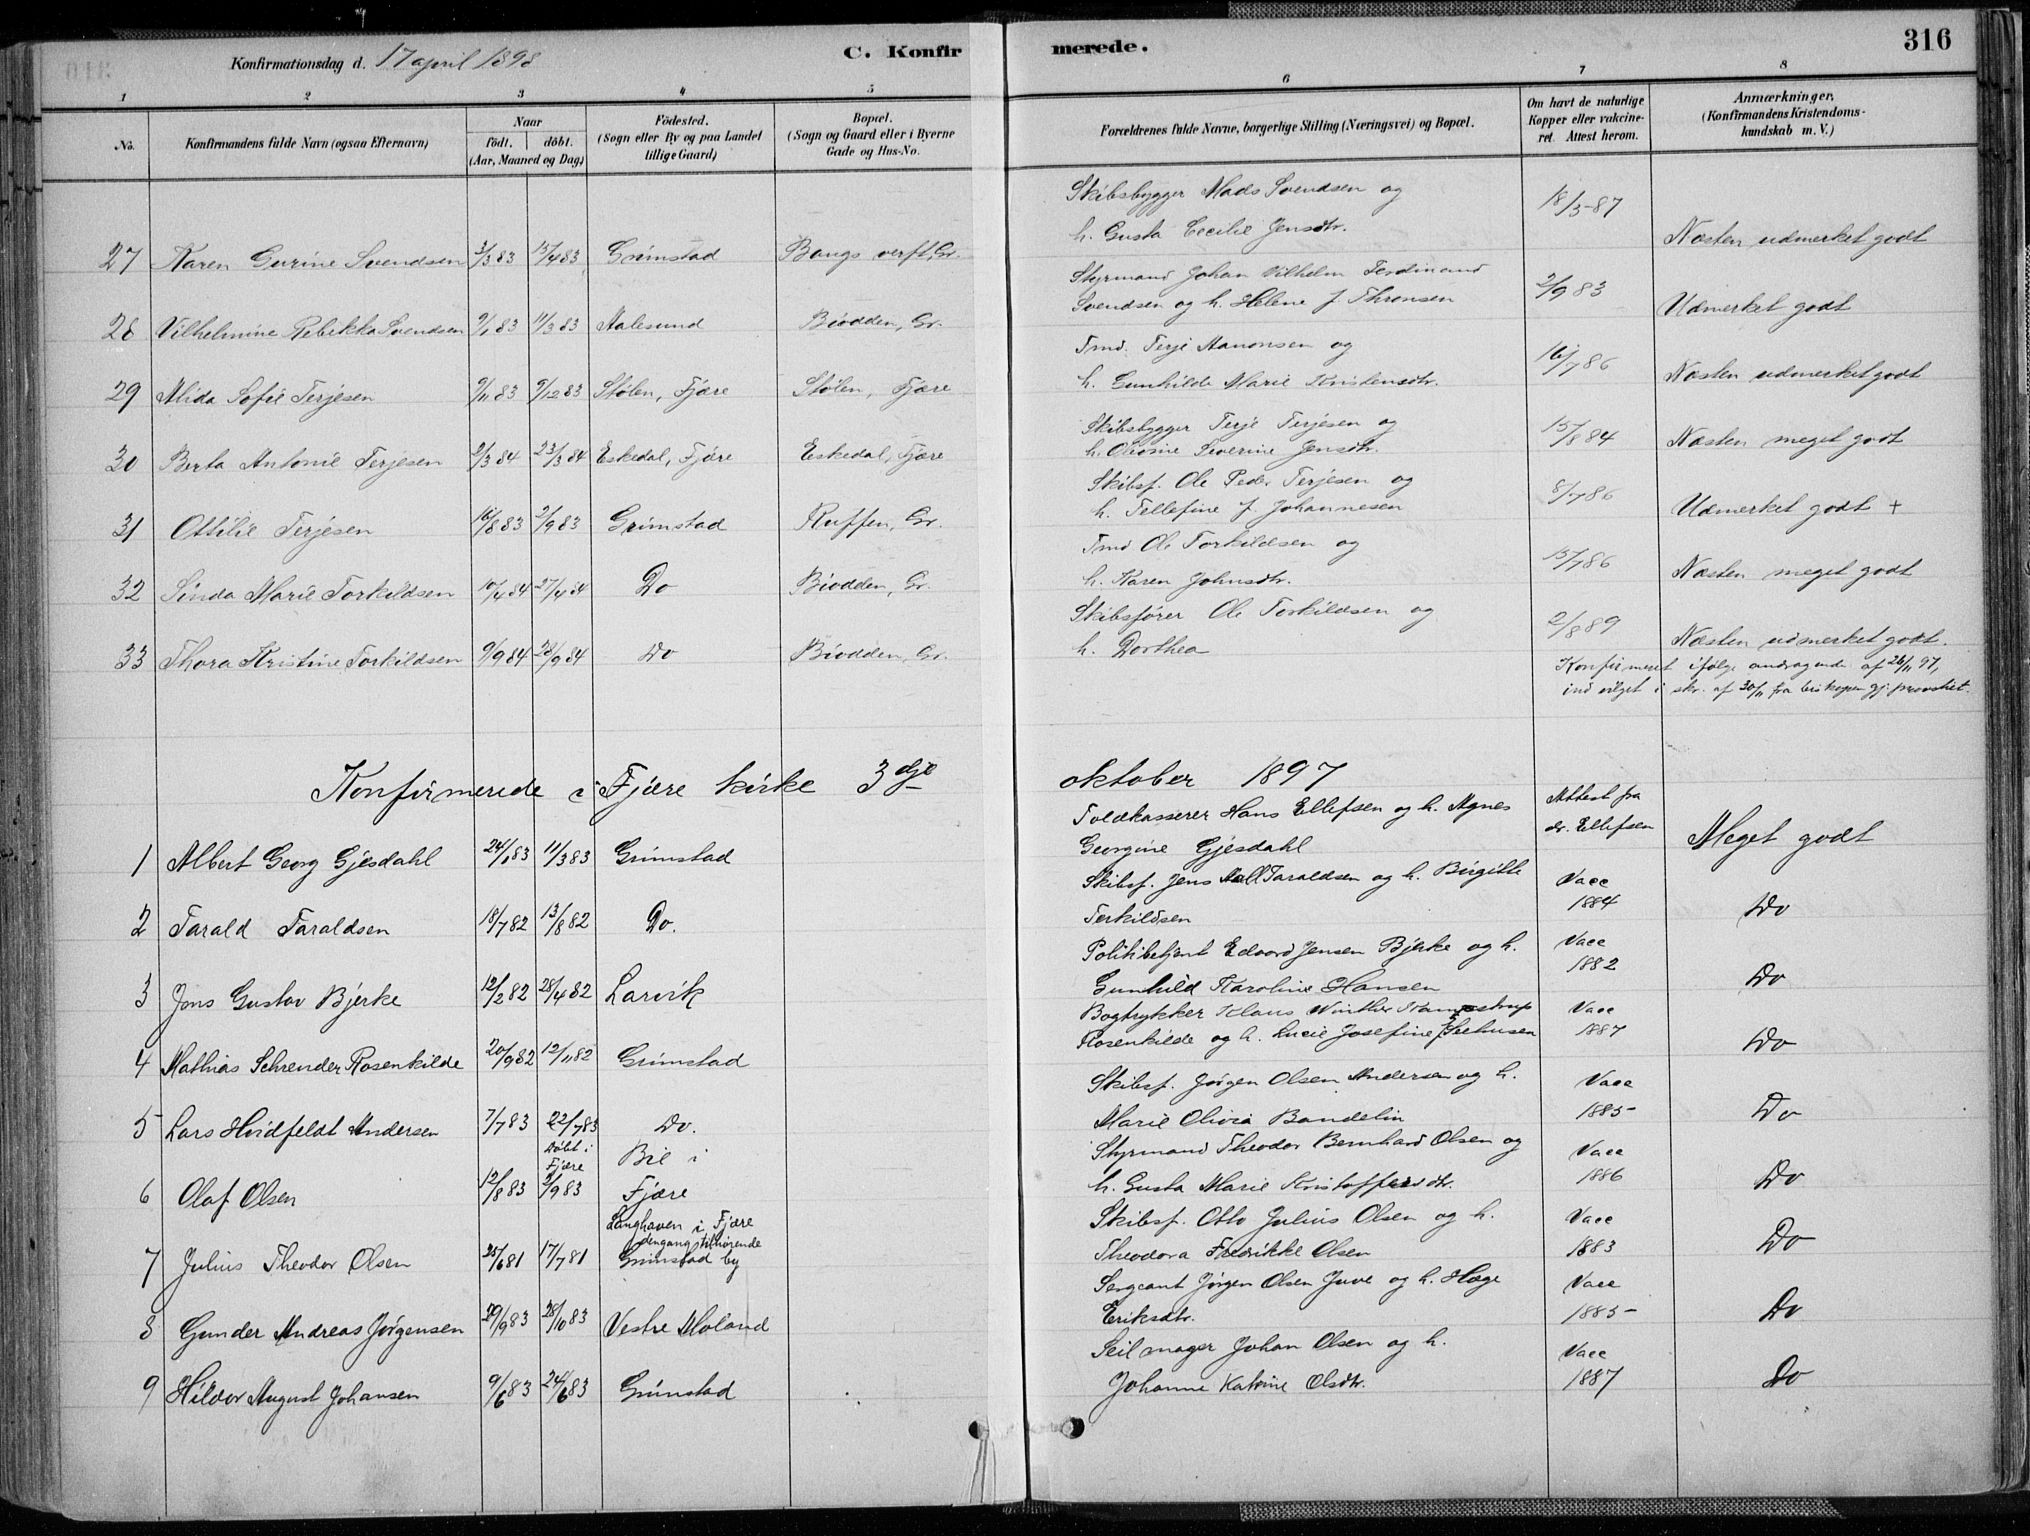 316
Konfirmationsdag d. 17 april 1898
C. Konfirmerede.
1 2 3 4 5 6 7 8
No.
Konfirmandens fulde Navn (ogsaa Efternavn)
Naar
födt. döbt.
(Aar, Maaned og Dag)
Födested.
(Sogn eller By og paa Landet
tillige Gaard)
Bopæl.
(Sogn og Gaard eller i Byerne
Gade og Hus-No.
Forældrenes fulde Navne, borgerlige Stilling (Næringsvei) og Bopæl.
Om havt de naturlige
Kopper eller vakcine-
ret. Attest herom.
Anmærkninger.
(Konfirmandens Kristendoms-
kundskab m. V.)
Skibsbygger Mads Svendsen og
27 Karen Gurine Svendsen 3/3 83 15/4 83 Grimstad Bangs verft, Gr. h. Gusta Cecilie Jensdtr. 18/5-87 Næsten udmerket godt
Styrmand Johan Vilhelm Ferdinand
28 Vilhelmine Rebekka Svendsen 9/1 83 11/3 83 Aalesund Biodden, Gr. Svendsen og h. Helene f. Thronsen 2/9 83 Udmerket godt
Tmd. Terje Aanonsen og
29 Alida Sofie Terjesen 9/11 83 9/12 83 Stølen, Fjære Stølen, Fjære h. Gunhilde Marie Kristensdtr. 16/7 86 Næsten udmerket godt
Skibsbygger Terje Terjesen og
30 Berta Antonie Terjesen 2/3 84 23/3 84 Eskedal, Fjære Eskedal, Fjære h. Severine Jensdtr. 15/8 84 Næsten meget godt
Skibsf. Ole Peder Terjesen og
31 Ottilie Terjesen 16/8 83 2/9 83 Grimstad Ruffen, Gr. h. Tellefine f. Johannesen 8/7 86 Udmerket godt +
Tmd Ole Torkildsen og
32 Linda Marie Torkildsen 10/4 84 27/4 84 Do Biodden, Gr. h. Karen Johnsdtr. 15/7 86 Næsten meget godt
Skibsfører Ole Torkildsen og
33 Thora Kristine Torkildsen 9/9 84 28/9 84 Do Biodden, Gr. h. Dorthea 2/8 89 Næsten udmerket godt.
Konfirmeret ifølge andragende af 26/11 97,
indvilget i skr. af 30/11 fra biskopen gj. provstiet.
Konfirmerede i Fjære kirke 3dje oktober 1897
Toldkasserer Hans Ellefsen og h. Agnes Attest fra
1 Albert Georg Gjesdahl 24/1 83 11/3 83 Grimstad Georgine Gjesdahl dr. Ellefsen Meget godt
Skibsf. Jens Taraldsen og h. Birgitte Vacc
2 Tarald Taraldsen 18/7 82 13/8 82 Do. Terkildsen 1884 Do
Politibetjent Edvard Jensen Bjerke og h. Vacc
3 Jens Gustav Bjerke 12/2 82 28/4 82 Larvik Gunhild Karoline Hansen 1882 Do
Bogtrykker Klaus Winther Vacc
4 Mathias Schrender Rosenkilde 20/9 82 12/11 82 Grimstad Rosenkilde og h. Lucie Josefine f. Seehusen 1887 Do
Skibsf. Jørgen Olsen Andersen og h. Vacc
5 Lars Hvidfeldt Andersen 7/7 83 22/7 83 Do. Marie Olivia Bandelin 1885- Do
Døbt i Fjære
Styrmand Theodor Bernhard Olsen og Vacc
6 Olaf Olsen 12/8 83 2/9 83 Bie i Fjære h. Gusta Marie Kristoffersdtr. 1886 Do
Langhaven i Fjære dengang tilhørende
Skibsf. Otto Julius Olsen og h. Vacc
7 Julius Theodor Olsen 25/6 81 17/7 81 Grimstad by Theodora Fredrikke Olsen 1883 Do
Sergeant Jørgen Olsen Juve og h. Hæge Vacc
8 Gunder Andreas Jørgensen 29/9 83 28/10 83 Vestre Moland Eriksdtr. 1885- Do
Seilmager Johan Olsen og h. Vacc
9 Hildor August Johansen 9/6 83 24/6 83 Grimstad Johanne Katrine Olsdtr. 1887 Do